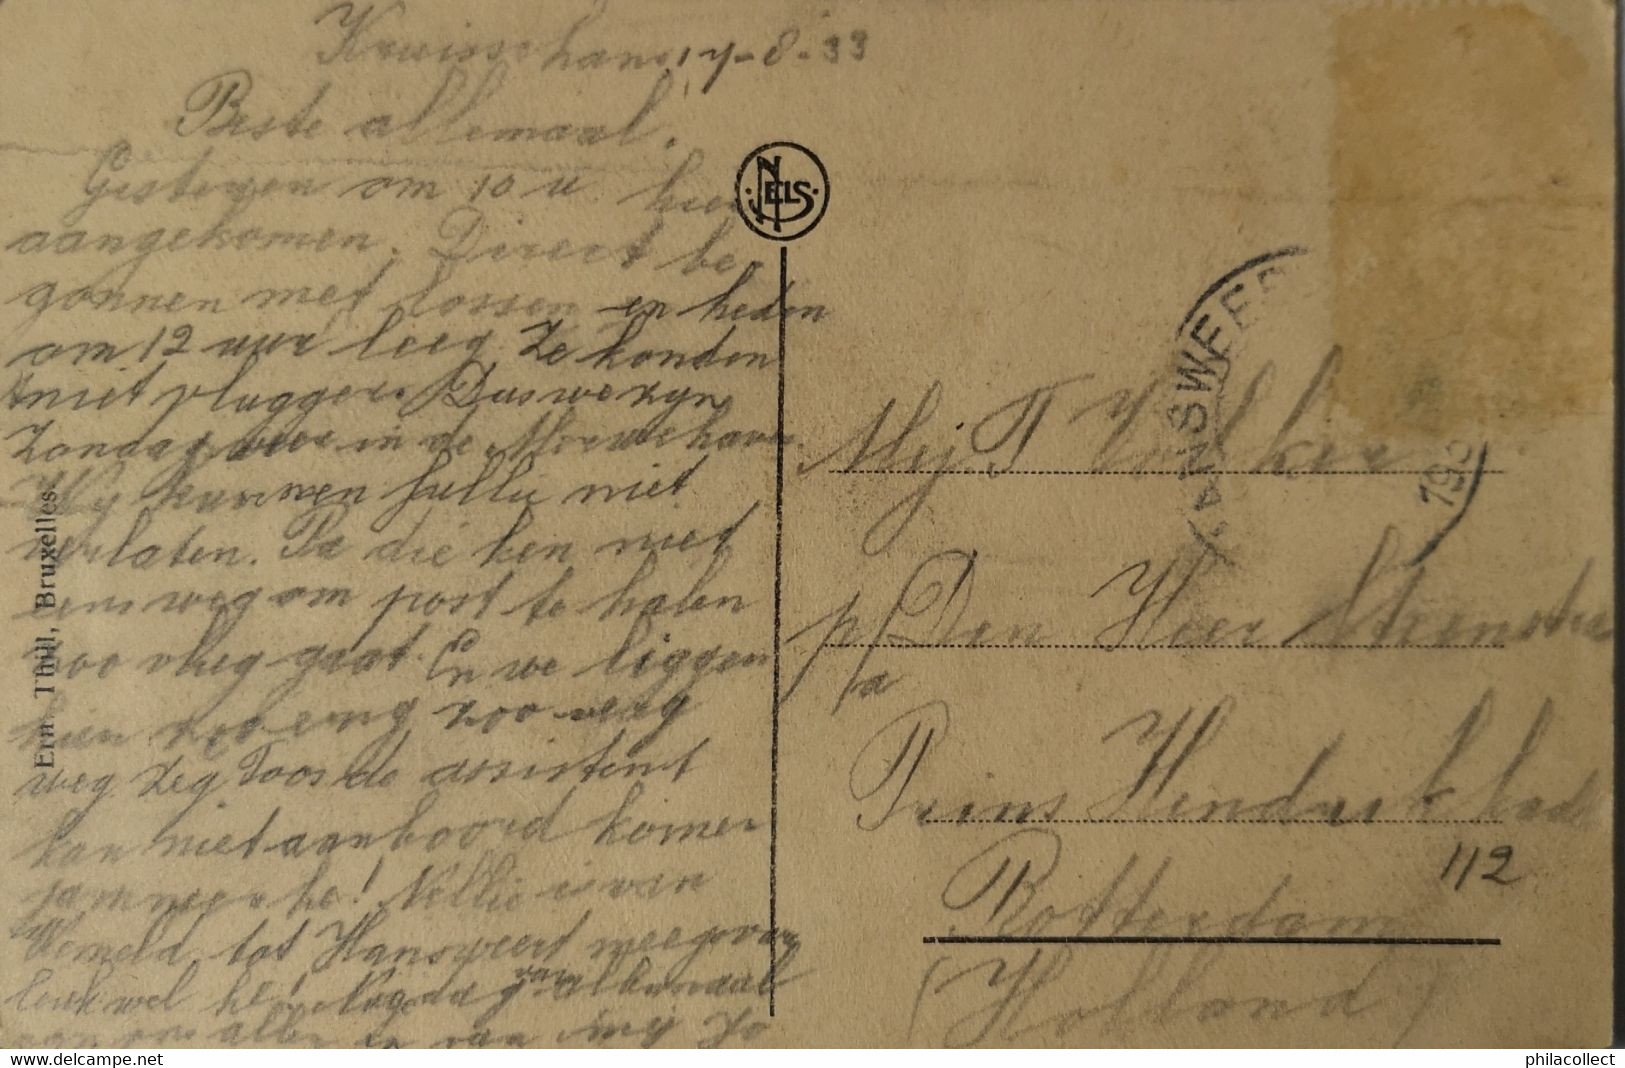 Kruisschans 17-8-33
Beste allemaal.
Gisteren om 10 u hier
aangekomen. Direct be-
gonnen met lossen en heden
om 12 uur leeg. Ze konden
niet vlugger. Dus we zyn
Zondag weer in de Merwehaven.
Wy kunnen jullie niet
verlaten. Pa die ken niet
eens weg om post te halen
zoo vlug gaat. En we liggen
hier zoo eeuwig zoo
weg zeg Toos de assistent
kan niet aanboord komen
jammer he! Nellie is van
Wemeld. tot Hansweert meegevaren
leuk wel he! Nu dag van allemaal
van mij zo
NELS
Ern. Thill, Bruxelles
HANSWEERT
193
Mej. T Volker
p/a Den Heer Strenstra
Prins Hendrik kade
112
Rotterdam
(Holland)
philacollect
www.delcampe.net